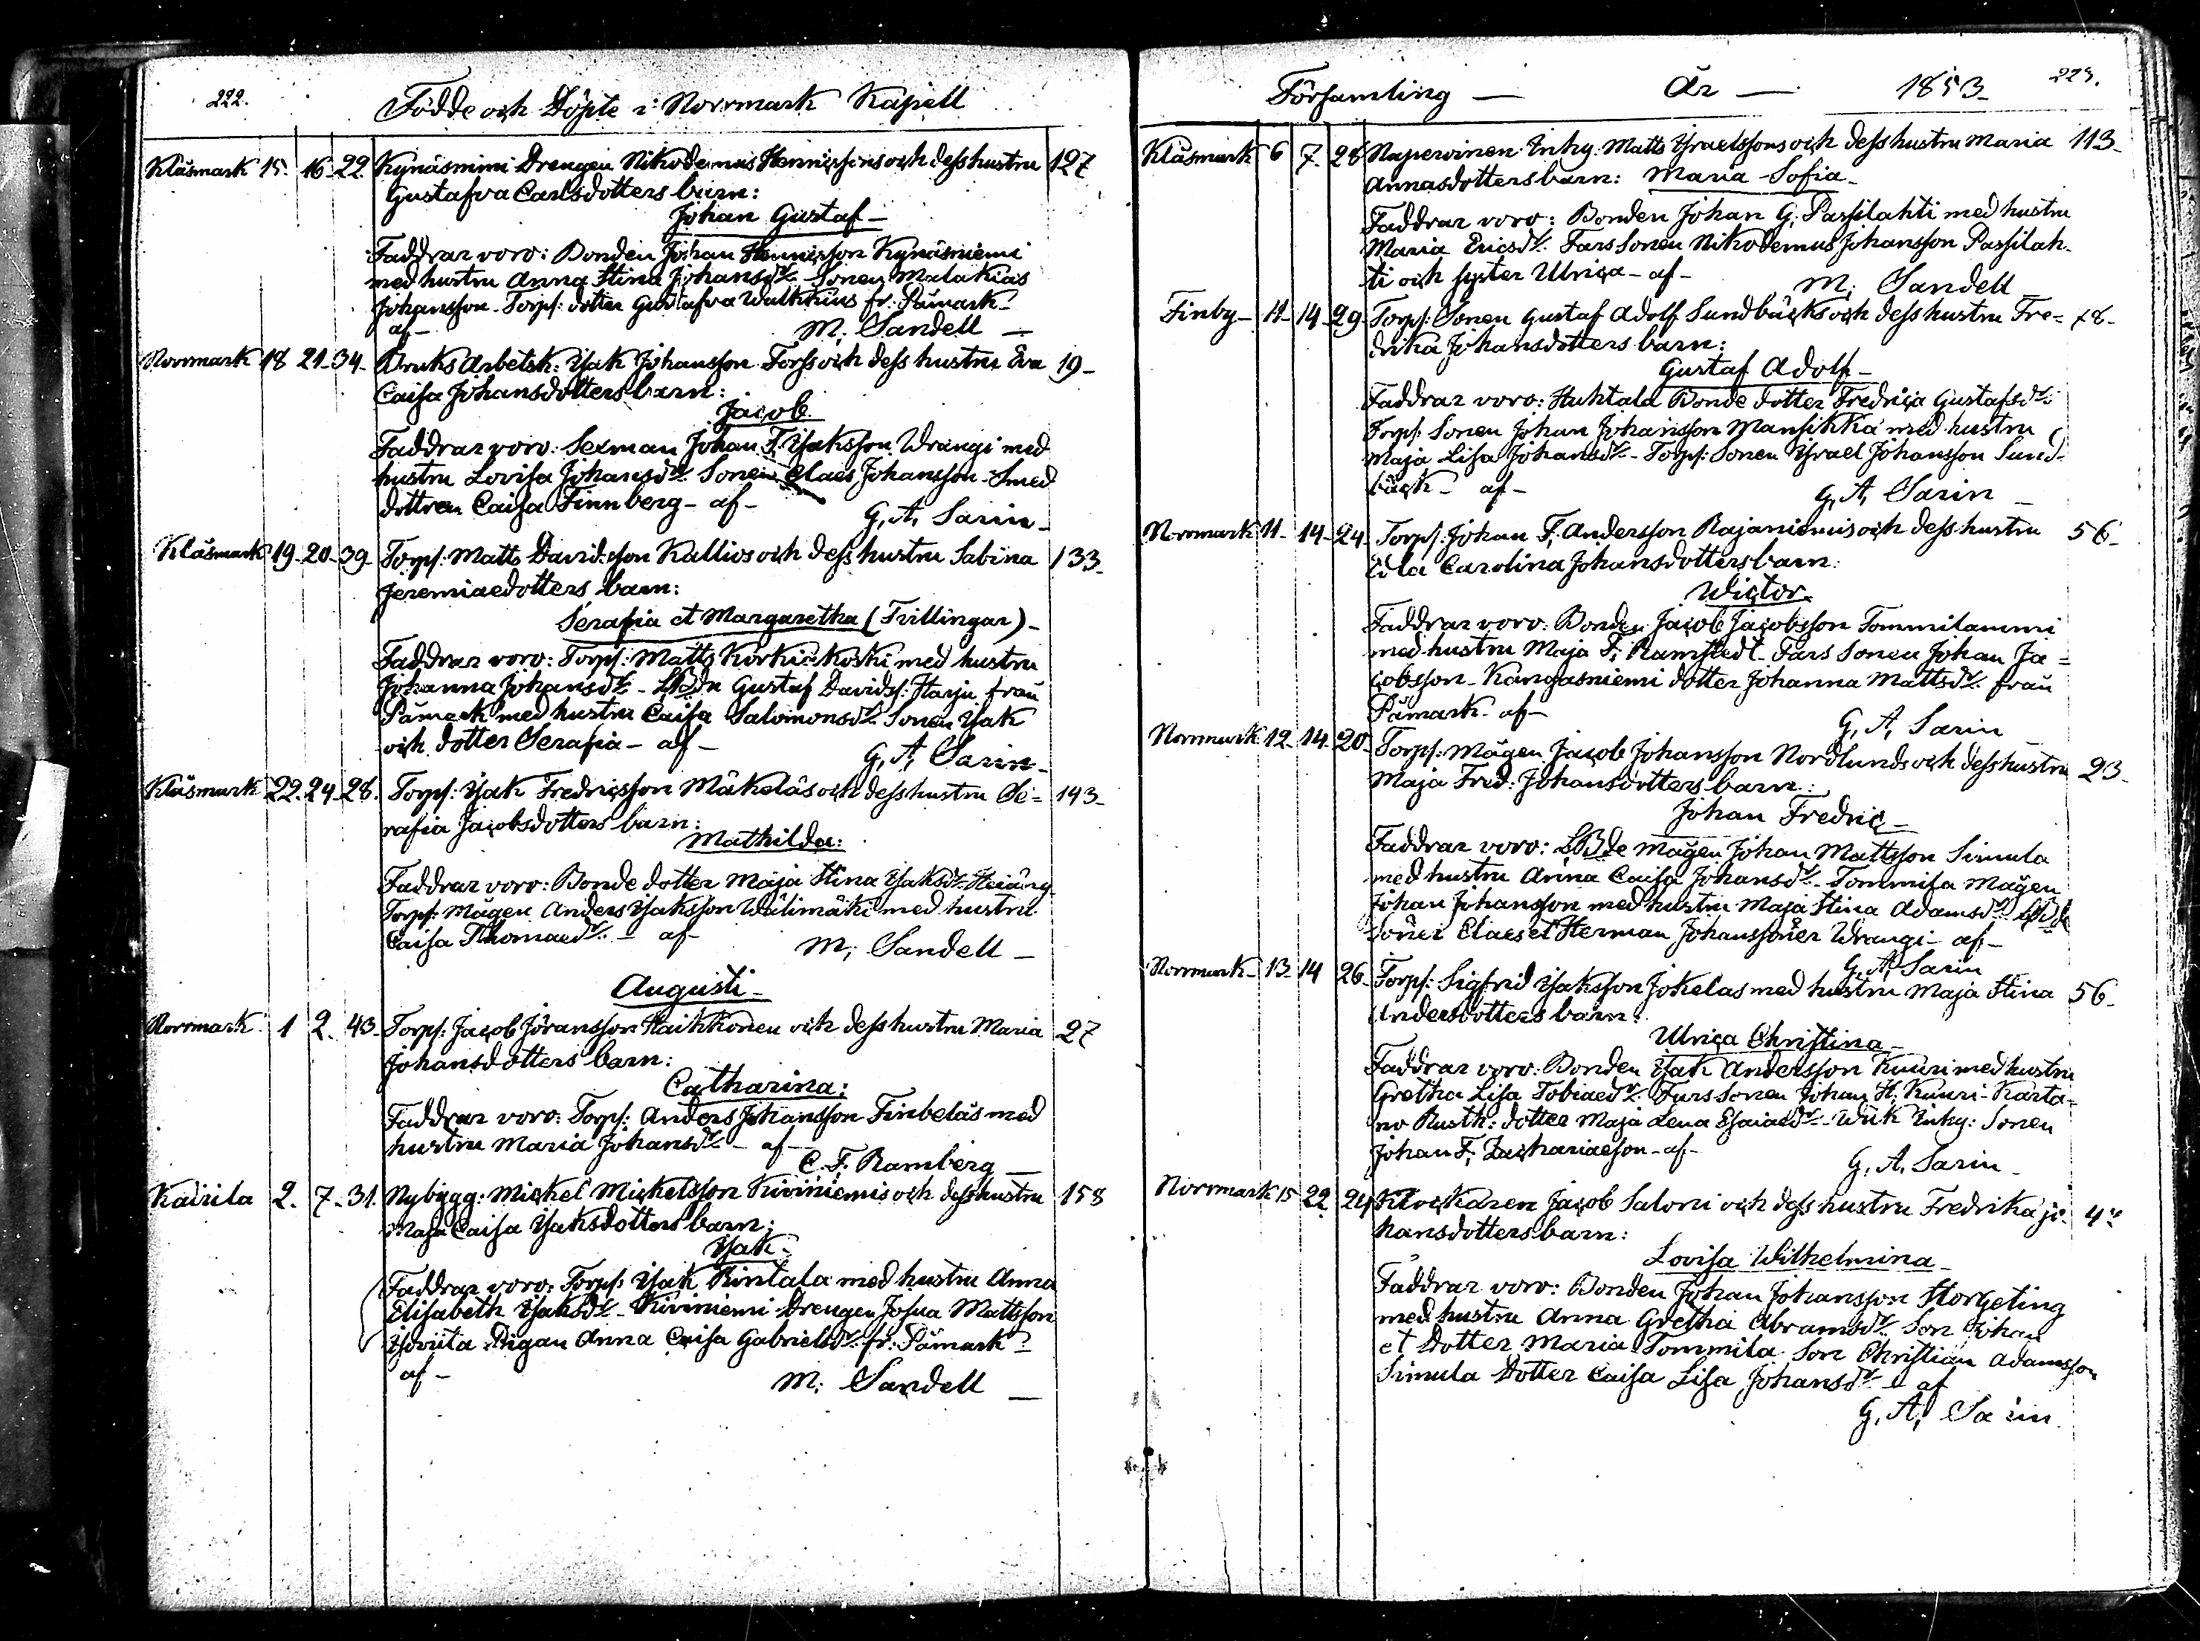 222.
Födde och Döpte i Norrmark Kapell
Klåsmark 15. 16. 22. Kynäsmimi Drengen Nikodemus Hennissons och dess hustru 127
Gustafva Carlsdotters barn:
Johan Gustaf
Faddrar voro: Bonden Johan Hennisson Kynäsniemi
med hustru Anna Stina Johansdr Sonen Malakias
Johansson Torps: dotter Gustafva Walkkius fr: Påmark
af M. Sandell
Norrmark 18 21 34 Bruks Arbetsk: Isak Johansson Forss och dess hustru Eva 19
Caisa Johansdotters barn:
Jacob
Faddrar voro: Sexman Johan F. Isaksson Wrangi med
hustru Lovisa Johansdr Sonen Claes Johansson Smed
dottren Caisa Finnberg af
G. A. Sarin
Klåsmark 19 20 39 Torps: Matts Davidsson Kallios och dess hustru Sabina 133
Jeremiaedotters barn:
Serafia et Margaretha (Tvillingar)
Faddrar voro: Torps: Matts Korkiakoski med hustru
Johanna Johansdr LBdn Gustaf Davids: Harju från
Påmark med hustru Caisa Salomonsdr Sonen Isak
och dotter Serafia af
G. A. Sarin
Klåsmark 22. 24. 28. Torps: Isak Fredricsson Mäkeläs och dess hustru Se= 143
rafia Jacobsdotters barn:
Mathilda:
Faddrar voro: Bonde dotter Maja Stina Isaksdr
Torps: Mågen Anders Isaksson Wälimäki med hustru
Caisa Thomaedr af
M. Sandell
Augusti
Norrmark 1 2. 43 Torps: Jacob Jöransson Haikkonen och dess hustru Maria 27
Johansdotters barn:
Catharina:
Faddrar voro: Torps: Anders Johansson Finbeläs med
hustru Maria Johansdr af
C. F. Ramberg
Kairila 2. 7. 31. Nybygg: Mickel Mickelsson Kiviniemis och dess hustru 158
Maja Caisa Isaksdotters barn:
Isak
Faddrar voro: Torps: Isak Rintala med hustru Anna
Elisabeth Isaksdr Kiviniemi Drengen Josua Mattsson
Pigan Anna Caisa Gabrielsdr fr: Påmark
af
M. Sandell
Församling År 1853 223.
Klåsmark 6 7 28 Naperoinen Inhy: Matts Israelssons och dess hustru Maria 113
Annasdotters barn: Maria Sofia
Faddrar voro: Bonden Johan G. Passilahti med hustru
Maria Ericsdr Fars Sonen Nikodemus Johansson Passilah-
ti och syster Ulrica af
M. Sandell
Finby 11 14 29 Torps: Sonen Gustaf Adolf Sundbäcks och dess hustru Fre= 78
drika Johansdotters barn:
Gustaf Adolf
Faddrar voro: Huhtala Bonde dotter Fredrica Gustafsdr
Torps: Sonen Johan Johansson Mansikka med hustru
Maja Lisa Johansdr Torps: Sonen Israel Johansson Sund-
bäck af
G. A. Sarin
Norrmark 11 14 24 Torps: Johan F. Andersson Rajaniemis och dess hustru 56
Eola Carolina Johansdotters barn:
Wictor
Faddrar voro: Bonden Jacob Jacobsson Tommilammi
med hustru Maja F. Ramstedt Fars Sonen Johan Ja=
cobsson Kangasniemi dotter Johanna Mattsdr från
Påmark af
G. A. Sarin
Norrmark 12 14 20 Torps: Mågen Jacob Johansson Nordlunds och dess hustru 23
Maja Fred: Johansdotters barn:
Johan Fredric
Faddrar voro: LBde Mågen Johan Mattsson Simula
med hustru Anna Caisa Johansdr Tommila Mågen
Johan Johansson med hustru Maja Stina Adamsdr LBde
Söner Claes et Herman Johanssöner Wrangi af
G. A. Sarin
Norrmark 13 14 26 Torps: Sigfrid Isaksson Jokelas med hustru Maja Stina 56
Andersdotters barn:
Ulrica Christina
Faddrar voro: Bonden Isak Andersson Kuuri med hustru
Gretha Lisa Tobiaedr Fars Sonen Johan H. Kuuri Karta=
no Rusth: dotter Maja Lena Esaiaedr Inhy: Sonen
Johan F. Zachariaeson af
G. A. Sarin
Norrmark 15 22 24 Klockaren Jacob Saloni och dess hustru Fredrika Jo- 4
hansdotters barn:
Lovisa Wilhelmina
Faddrar voro: Bonden Johan Johansson Storgeting
med hustru Anna Gretha Abramsdr Son Johan
et Dotter Maria Tommila Son Christian Adamsson
Simula Dotter Caisa Lisa Johansdr af
G. A. Sarin